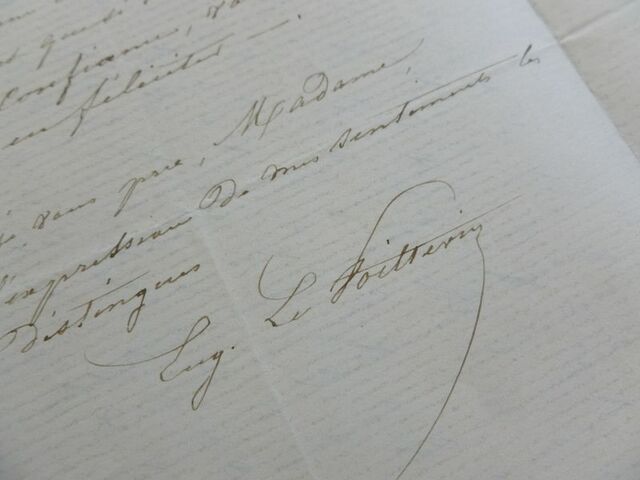 confiance, v
en féliciter —.
vous prie, Madame,
l'expression de mes sentiments les
distingués
Eug. Le Poittevin